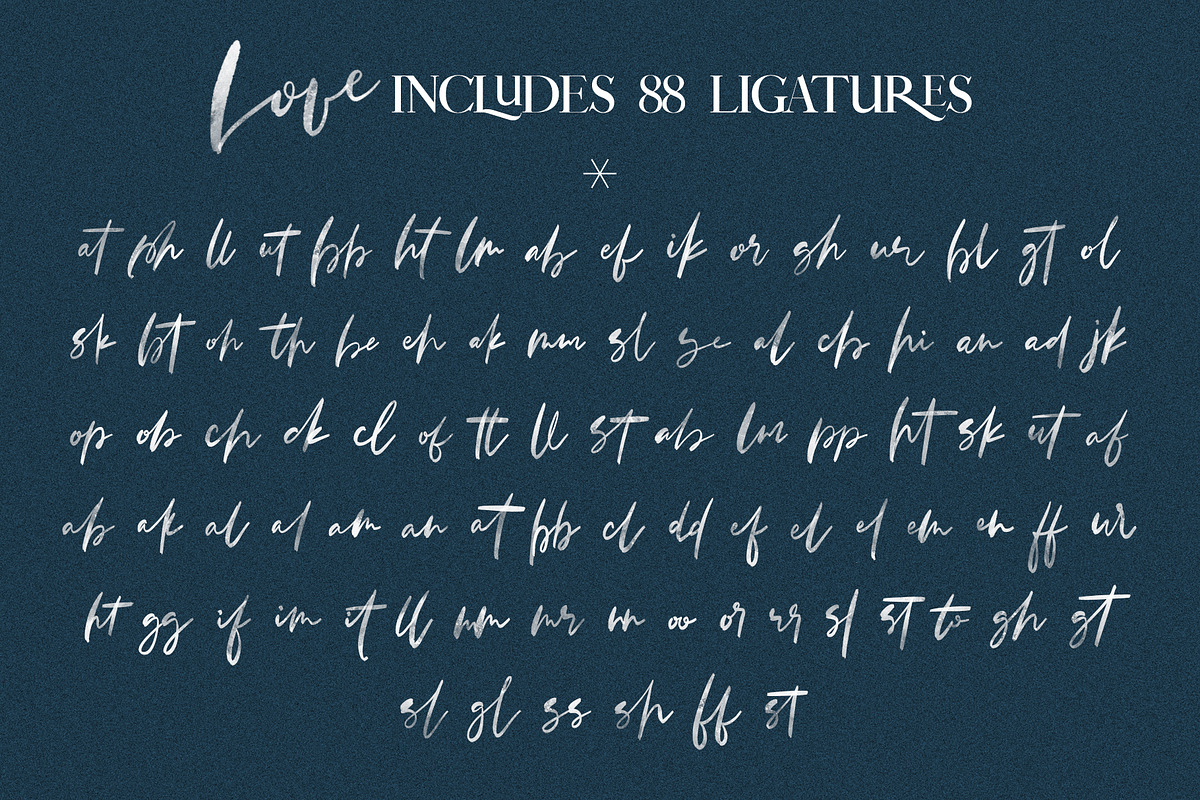 Love INCLUDES 88 LIGATURES
at ph ll ut bb ht lm ab ef ik or gh ur bl gt ol
sk bt oh th be eh ak mm sl ye al cb hi an ad jk
op ob ch ck cl of tt ll st ab lm pp ht sk ut af
ab ak al al am an at bb cl dd ef el el em en ff ur
ht gg if im it ll mm mr nn oo or rr sl st to gh gt
sl gl ss sh ff st